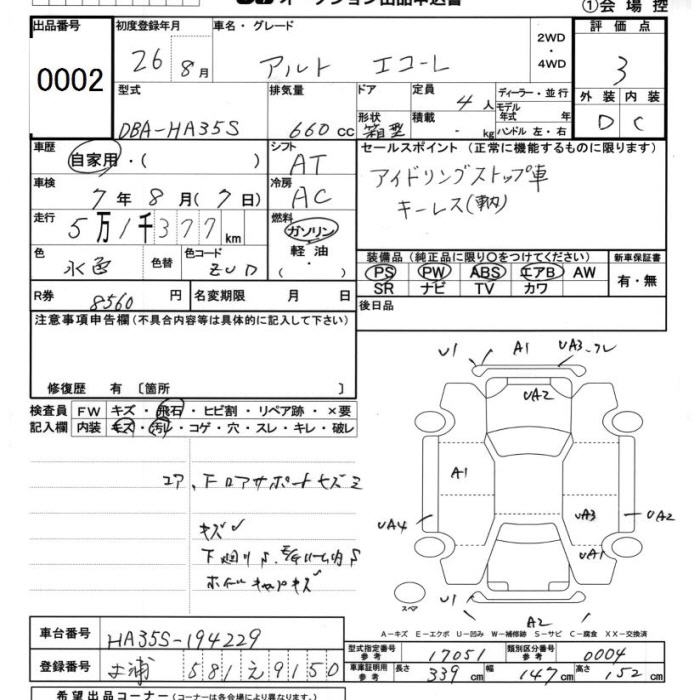 オークション出品申込書
①会場控
出品番号 初度登録年月 車名・グレード 評価点
0002
26 8月 アルト エコ-L 2WD・4WD 3
型式 排気量 ドア 定員 ディーラー・並行 外装 内装
DBA-HA35S 660cc 形状 箱型 4人 積載 - kg モデル年式 年 ハンドル 左・右 D C
車歴 自家用・( ) シフト AT セールスポイント (正常に機能するものに限ります)
車検 7年8月(7日) 冷房 AC アイドリングストップ車
キーレス(車内)
走行 5万1千377km 燃料 ガソリン
軽油
( ・ )
色 水色 色替 色コード ZUD
装備品 (純正品に限り○をつけてください) 新車保証書
PS PW ABS エアB AW 有・無
SR ナビ TV カワ
R券 8560円 名変期限 月 日 後日品
注意事項申告欄 (不具合内容等は具体的に記入して下さい)
修復歴 有 〔箇所 〕
検査員 FW キズ・飛石・ヒビ割・リペア跡・×要
記入欄 内装 キズ・汚レ・コゲ・穴・スレ・キレ・破レ
キズ
ホイールキャップキズ
U1 A1 UA3
UA2
A1
UA4 UA3 UA2
UA1
U1 A2
スペア
A-キズ E-エクボ U-凹み W-補修跡 S-サビ C-腐食 XX-交換済
車台番号 HA35S-194229
登録番号 土浦 581 え 9150
型式指定番号 参考 17051 類別区分番号 参考 0004
車庫証明用 参考 長さ 339cm 幅 147cm 高さ 152cm
希望出品コーナー (コーナーは各会場により異なります。)